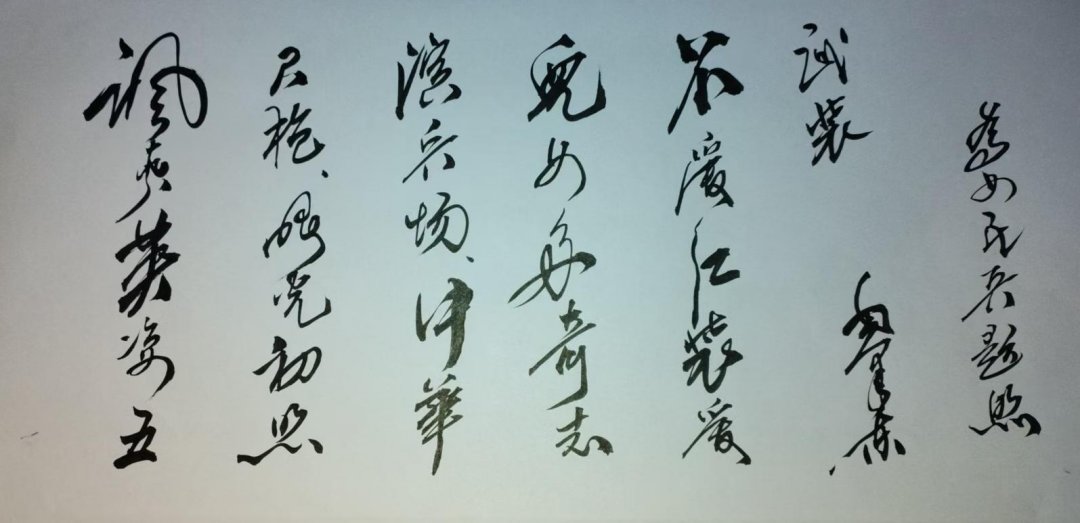 颯爽英姿五
尺枪、曙光初照
演兵场、中華
兒女多奇志
不爱红装爱
武装 毛泽东
為女民兵题照